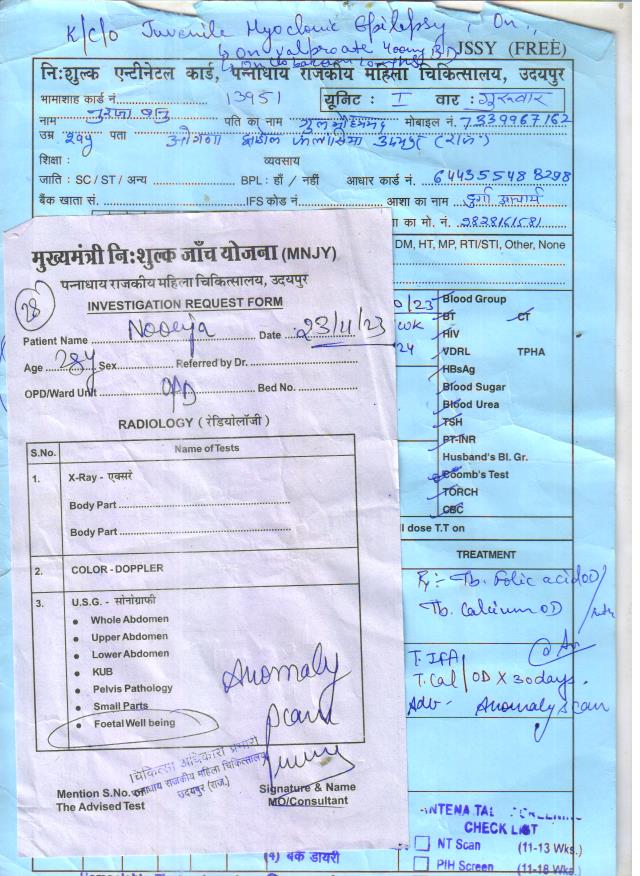 K/C/O Juvenile Myoclonic Epilepsy, On
on valproate 400mg BD
JSSY (FREE)
निःशुल्क एन्टीनेटल कार्ड, पन्नाधाय राजकीय महिला चिकित्सालय, उदयपुर
भामाशाह कार्ड नं. 13951 यूनिट : I वार : गुरूवार
नाम पति का नाम मोबाइल नं. 7839967162
उम्र पता
शिक्षा : व्यवसाय
जाति : SC / ST / अन्य BPL: हाँ / नहीं आधार कार्ड नं. 644355488298
बैंक खाता सं. IFS कोड नं. आशा का नाम दुर्गा आचार्य
का मो. नं. 9828161581
DM, HT, MP, RTI/STI, Other, None
मुख्यमंत्री निःशुल्क जाँच योजना (MNJY)
पन्नाधाय राजकीय महिला चिकित्सालय, उदयपुर
28
INVESTIGATION REQUEST FORM
Patient Name Nooreja Date 23/11/23
Age 28y Sex Referred by Dr.
OPD/Ward Unit OPD Bed No.
RADIOLOGY ( रेडियोलॉजी )
S.No. Name of Tests
1. X-Ray - एक्सरे
Body Part
Body Part
2. COLOR - DOPPLER
3. U.S.G. - सोनोग्राफी
Whole Abdomen
Upper Abdomen
Lower Abdomen
KUB
Pelvis Pathology
Small Parts
Foetal Well being
Anomaly
scan
चिकित्सा अधिकारी प्रभारी
पन्नाधाय राजकीय महिला चिकित्सालय
उदयपुर (राज.)
Mention S.No. of
The Advised Test
Signature & Name
MO/Consultant
0/23
WK
24
Blood Group
BT CT
HIV
VDRL TPHA
HBsAg
Blood Sugar
Blood Urea
TSH
PT-INR
Husband's Bl. Gr.
Coomb's Test
TORCH
CBC
I dose T.T on
TREATMENT
Rx:- Tb. Folic acid OD
Tb. Calcium OD
T. IFA
T. Cal / OD X 30 days.
Adv - Anomaly scan
ANTENATAL SCREENING
CHECK LIST
NT Scan (11-13 Wks.)
PIH Screen (11-18 Wks.)
(१) बैंक डायरी